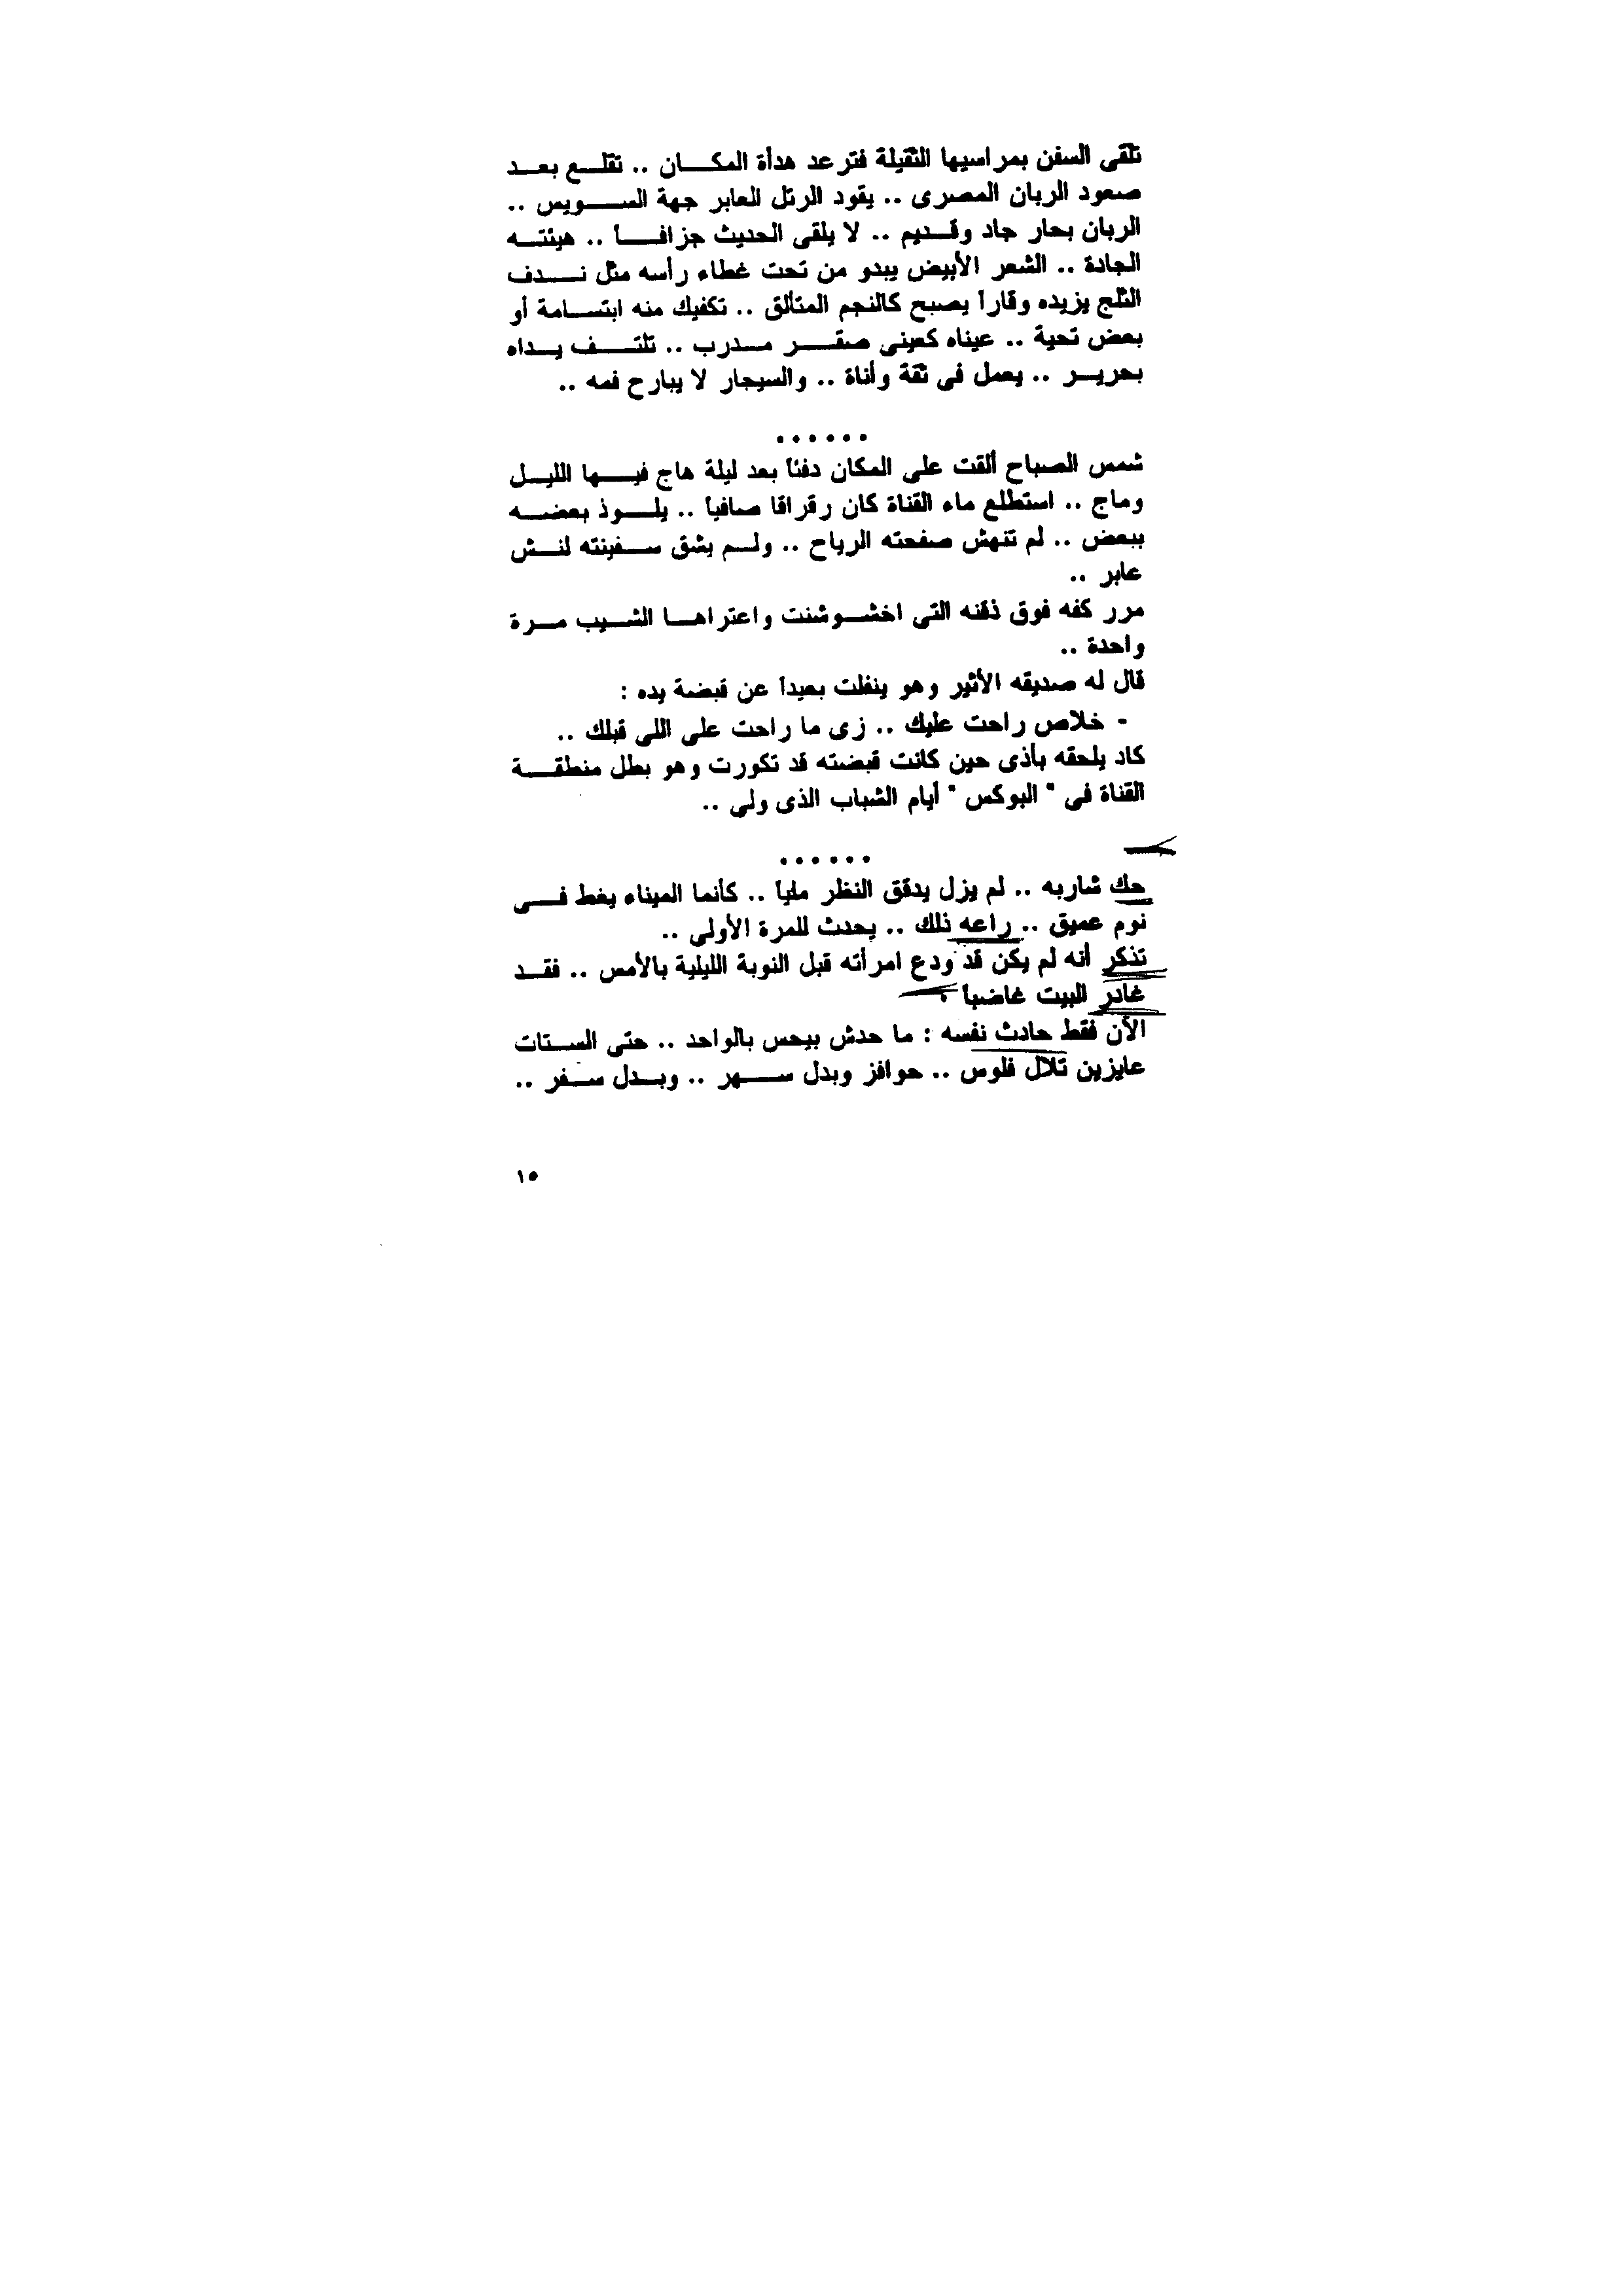 تلقى السفن بمراسيها الثقيلة فترعد هدأة المكان .. تقلع بعد
صعود الربان المصرى .. يقود الرتل العابر جهة السويس ..
الربان بحار جاد وقديم .. لا يلقى الحديث جزافاً .. هيئته
الجادة .. الشعر الأبيض يبدو من تحت غطاء رأسه مثل ندف
الثلج يزيده وقاراً يصبح كالنجم المتألق .. تكفيك منه ابتسامة أو
بعض تحية .. عيناه كعينى صقر مدرب .. تلتف يداه
بحرير .. يعمل فى ثقة وأناة .. والسيجار لا يبارح فمه ..
......
شمس الصباح ألقت على المكان دفئاً بعد ليلة هاج فيها الليل
وماج .. استطلع ماء القناة كان رقراقا صافياً .. يلوذ بعضه
ببعض .. لم تنهش صفحته الرياح .. ولم يشق سفينته لنش
عابر ..
مرر كفه فوق ذقنه التى اخشوشنت واعتراها الشيب مرة
واحدة ..
قال له صديقه الأثير وهو ينفلت بعيداً عن قبضة يده :
- خلاص راحت عليك .. زى ما راحت على اللى قبلك ..
كاد يلحقه بأذى حين كانت قبضته قد تكورت وهو بطل منطقة
القناة فى " البوكس " أيام الشباب الذى ولى ..
......
حك شاربه .. لم يزل يدقق النظر ملياً .. كأنما الميناء يغط فى
نوم عميق .. راعه ذلك .. يحدث للمرة الأولى ..
تذكر أنه لم يكن قد ودع امرأته قبل النوبة الليلية بالأمس .. فقد
غادر البيت غاضباً .
الآن فقط حادث نفسه : ما حدش بيحس بالواحد .. حتى الستات
عايزين تلال فلوس .. حوافز وبدل سهر .. وبدل سفر ..
١٥